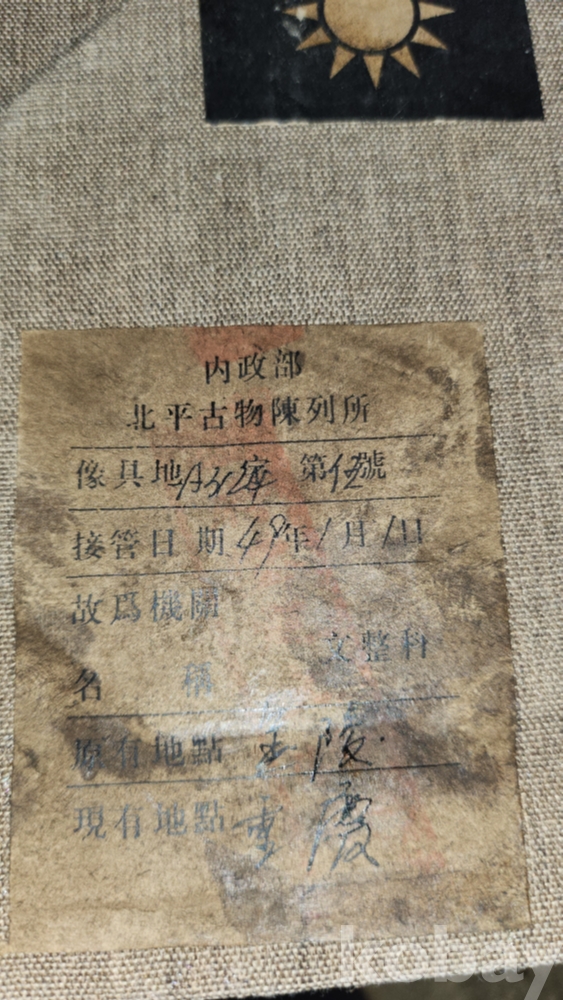 内政部
北平古物陳列所
傢具地 庫 第伍號
接管日期49年1月1日
故爲機關
文整科
名稱
原有地點 陵
現有地點 重慶
kobay